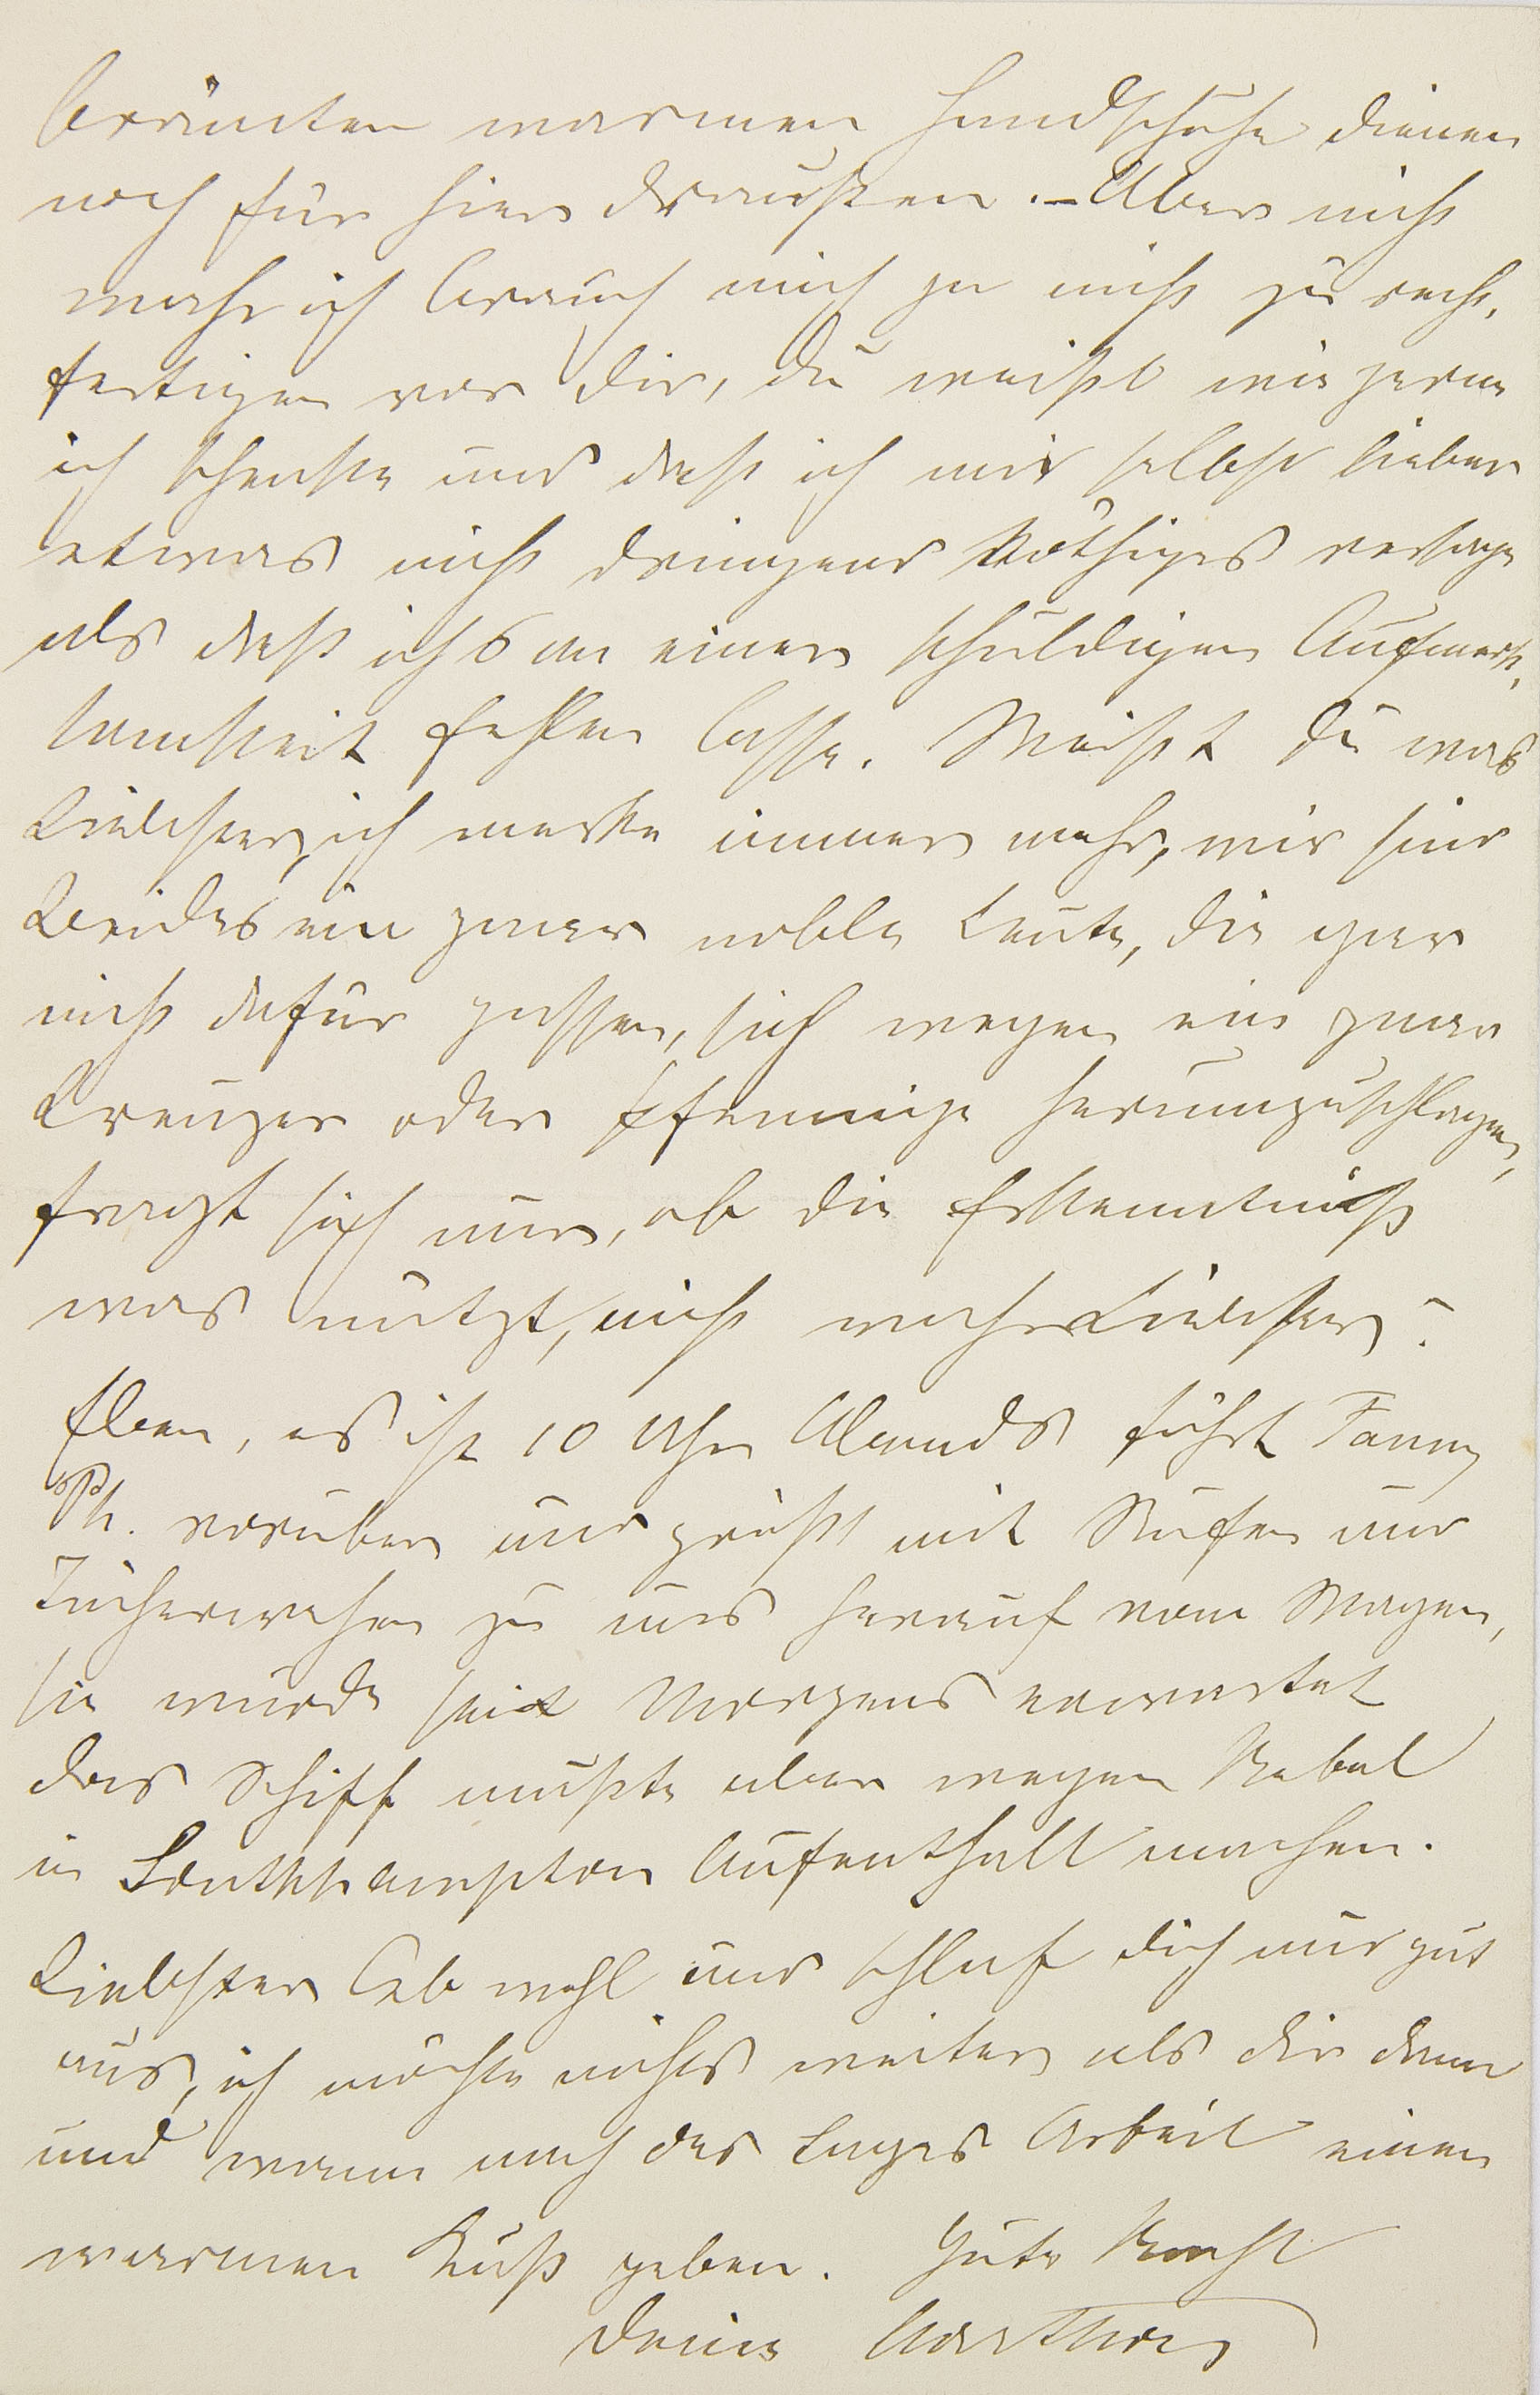 bräunten warmen Handschuhe dienen
noch für hier draußen. – Aber nicht
wahr ich brauch mich ja nicht zu recht,
fertigen vor Dir, Du weißt wie gerne
ich schenke und daß ich mir selbst lieber
etwas nicht dringend Nöthiges versage
als daß ichs an einer schuldigen Aufmerk,
samkeit fehlen lasse. Weißt Du was
Liebster, ich merke immer mehr, wir sind
Beides ein paar noble Leute, die gar
nicht dafür passen, sich wegen ein paar
Kreuzer oder Pfennige herumzuschlagen,
fragt sich nur, ob die Erkenntniß
was nützt, nicht wahr Liebster?
Eben, es ist 10 Uhr Abends fährt Fanny
Ph. vorüber und grüßt mit Rufen und
Tücherwehen zu uns herauf vom Wagen,
sie wurde seit Morgens erwartet
das Schiff mußte aber wegen Nebel
in Southhampton Aufenthalt machen.
Liebster leb wohl und schlaf Dich nur gut
aus, ich möchte nichts weiter als Dir dann
und wann nach des Tages Arbeit einen
warmen Kuß geben. Gute Nacht
Deine Marthe